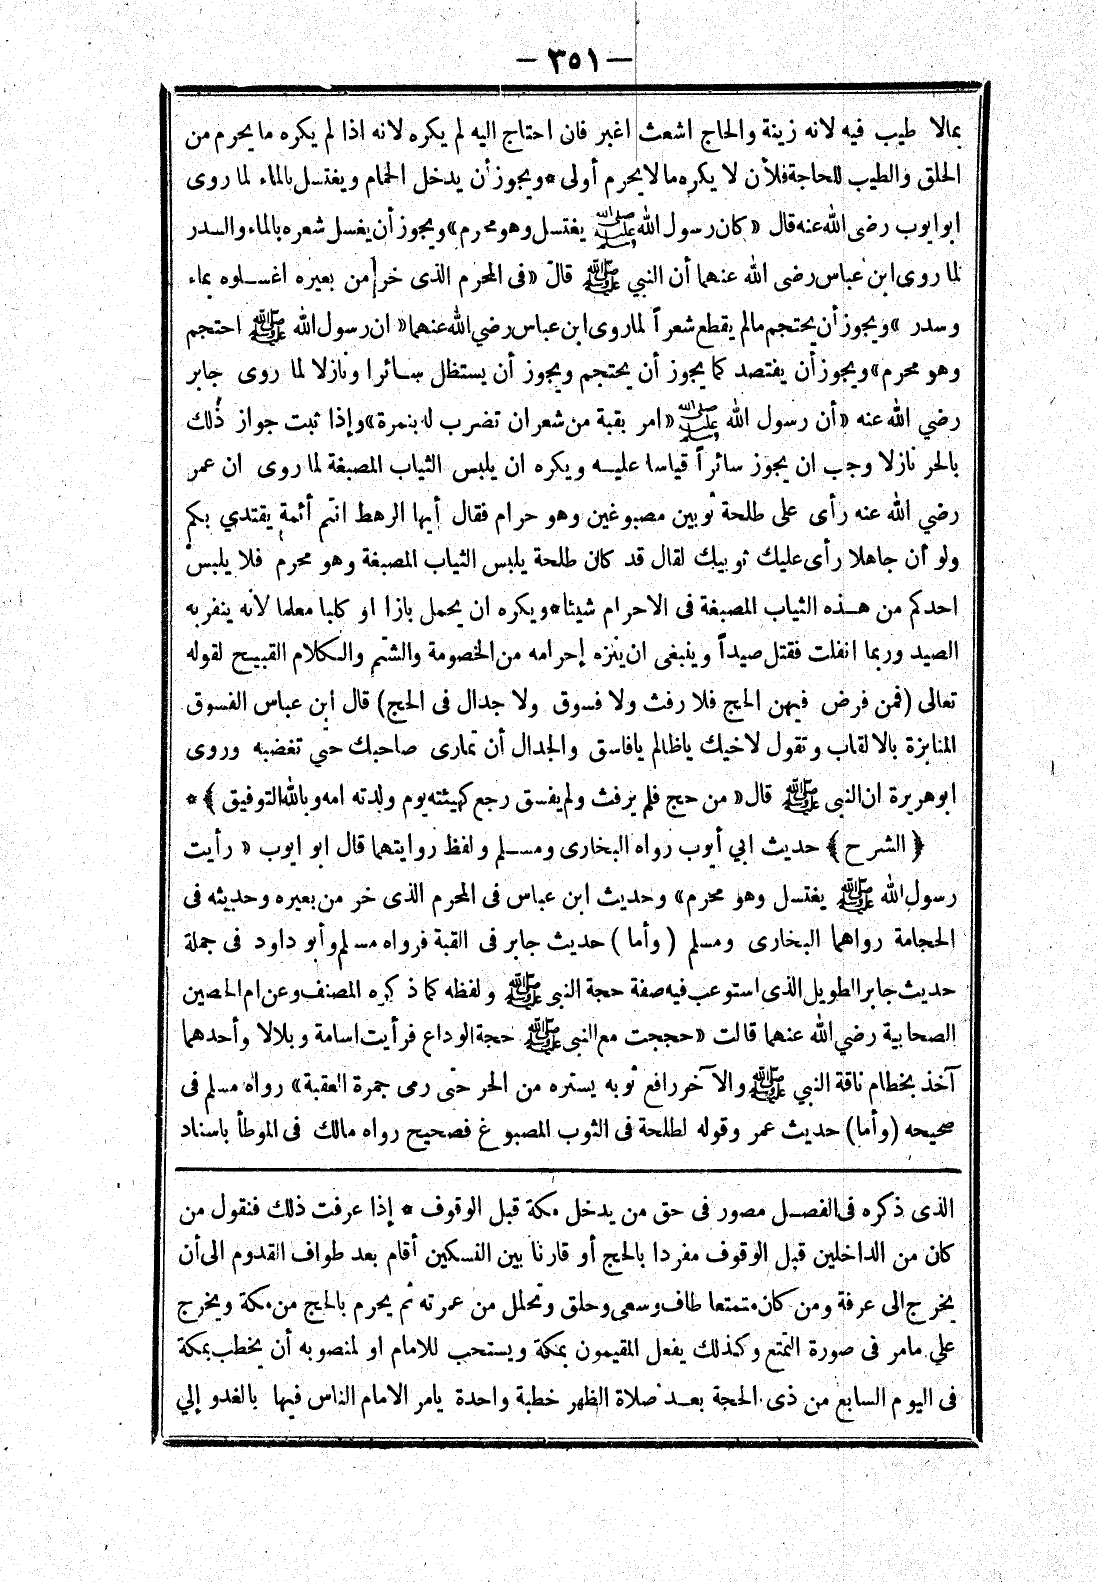 — ٣٥١ —
بمالا طيب فيه لانه زينة والحاج اشعث اغبر فان احتاج اليه لم يكره لانه اذا لم يكره ما يحرم من
الحلق والطيب للحاجة فلأن لا يكره مالا يحرم أولى * ويجوز أن يدخل الحمام ويغتسل بالماء لما روى
ابو ايوب رضى الله عنه قال «كان رسول الله ﷺ يغتسل وهو محرم» ويجوز أن يغسل شعره بالماء والسدر
لما روى ابن عباس رضى الله عنهما أن النبي ﷺ قال «فى المحرم الذى خر من بعيره اغسلوه بماء
وسدر» ويجوز أن يحتجم مالم يقطع شعراً لما روى ابن عباس رضي الله عنهما «ان رسول الله ﷺ احتجم
وهو محرم» ويجوز أن يفتصد كما يجوز أن يحتجم ويجوز أن يستظل سائرا ونازلا لما روى جابر
رضي الله عنه «أن رسول الله ﷺ «امر بقبة من شعر ان تضرب له بنمرة» وإذا ثبت جواز ذلك
بالحر نازلا وجب ان يجوز سائراً قياسا عليه ويكره ان يلبس الثياب المصبغة لما روى ان عمر
رضي الله عنه رأى على طلحة ثوبين مصبوغين وهو حرام فقال أيها الرهط انتم أئمة يقتدي بكم
ولو أن جاهلا رأى عليك ثوبيك لقال قد كان طلحة يلبس الثياب المصبغة وهو محرم فلا يلبس
احدكم من هذه الثياب المصبغة فى الاحرام شيئا * ويكره ان يحمل بازا او كلبا معلما لانه ينفر به
الصيد وربما انفلت فقتل صيداً وينبغى ان ينزه إحرامه من الخصومة والشتم والكلام القبيح لقوله
تعالى (فمن فرض فيهن الحج فلا رفث ولا فسوق ولا جدال فى الحج) قال ابن عباس الفسوق
المنابزة بالالقاب وتقول لاخيك ياظالم يافاسق والجدال أن تمارى صاحبك حتي تغضبه وروى
ابو هريرة ان النبى ﷺ قال «من حج فلم يرفث ولم يفسق رجع كهيئته يوم ولدته امه وبالله التوفيق ﴾ *
﴿ الشرح ﴾ حديث ابي أيوب رواه البخارى ومسلم ولفظ روايتهما قال ابو ايوب «رأيت
رسول الله ﷺ يغتسل وهو محرم» وحديث ابن عباس فى المحرم الذى خر من بعيره وحديثه فى
الحجامة رواهما البخارى ومسلم (وأما) حديث جابر فى القبة فرواه مسلم وأبو داود فى جملة
حديث جابر الطويل الذى استوعب فيه صفة حجة النبى ﷺ ولفظه كما ذكره المصنف وعن ام الحصين
الصحابية رضي الله عنهما قالت «حججت مع النبى ﷺ حجة الوداع فرأيت اسامة وبلالا وأحدهما
آخذ بخطام ناقة النبي ﷺ والآخر رافع ثوبه يستره من الحر حتى رمى جمرة العقبة» رواه مسلم فى
صحيحه (وأما) حديث عمر وقوله لطلحة فى الثوب المصبوغ فصحيح رواه مالك فى الموطأ باسناد
الذى ذكره فى الفصل مصور فى حق من يدخل مكة قبل الوقوف * إذا عرفت ذلك فنقول من
كان من الداخلين قبل الوقوف مفردا بالحج أو قارنا بين النسكين أقام بعد طواف القدوم الى أن
يخرج الى عرفة ومن كان متمتعا طاف وسعى وحلق وتحلل من عمرته ثم يحرم بالحج من مكة ويخرج
علي مامر فى صورة التمتع وكذلك يفعل المقيمون بمكة ويستحب للامام او لمنصوبه أن يخطب بمكة
فى اليوم السابع من ذى الحجة بعد صلاة الظهر خطبة واحدة يامر الامام الناس فيها بالغدو إلي